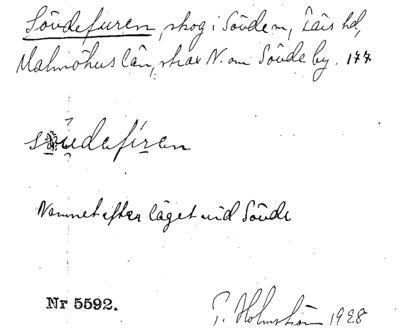 Sövdefuren, skog i Sövde sn, Färs hd,
Malmöhus län, strax N. om Sövde by. 177
sövdefúren
Namnet efter läget vid Sövde
Nr 5592.
P. Holmström 1928